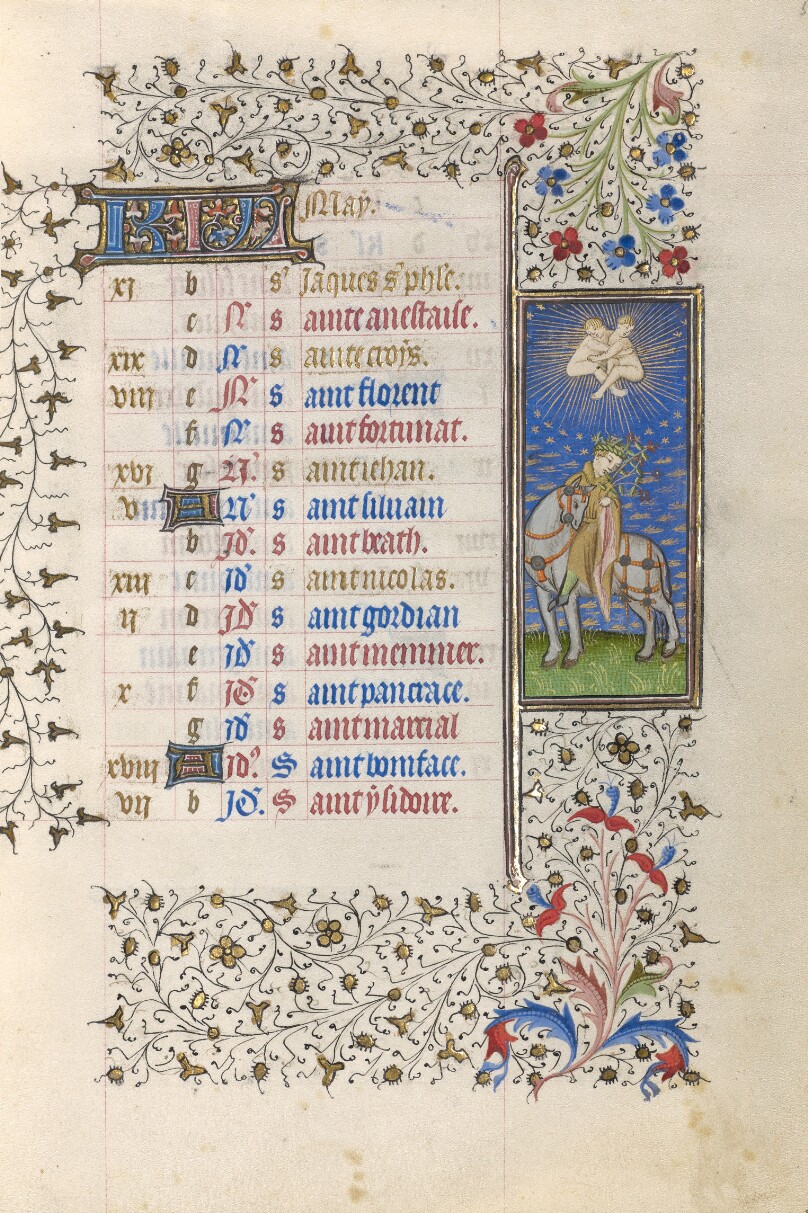 KL May.
xi b s' Jaques s' phl'e.
c N s ainte anestaise.
xix d N s ainte croys.
viii e N s aint florent
f N s aint fortunat.
xvi g N. s aint iehan.
v A N s aint siluain
b Jd. s aint beath.
xiii c Jd s aint nicolas.
ii d Jd s aint gordian
e Jd s aint memmer.
x f Jd s aint pancrace.
g Jd s aint marcial
xviii A Jd. S aint boniface.
vii b Jd. S aint ysidoire.